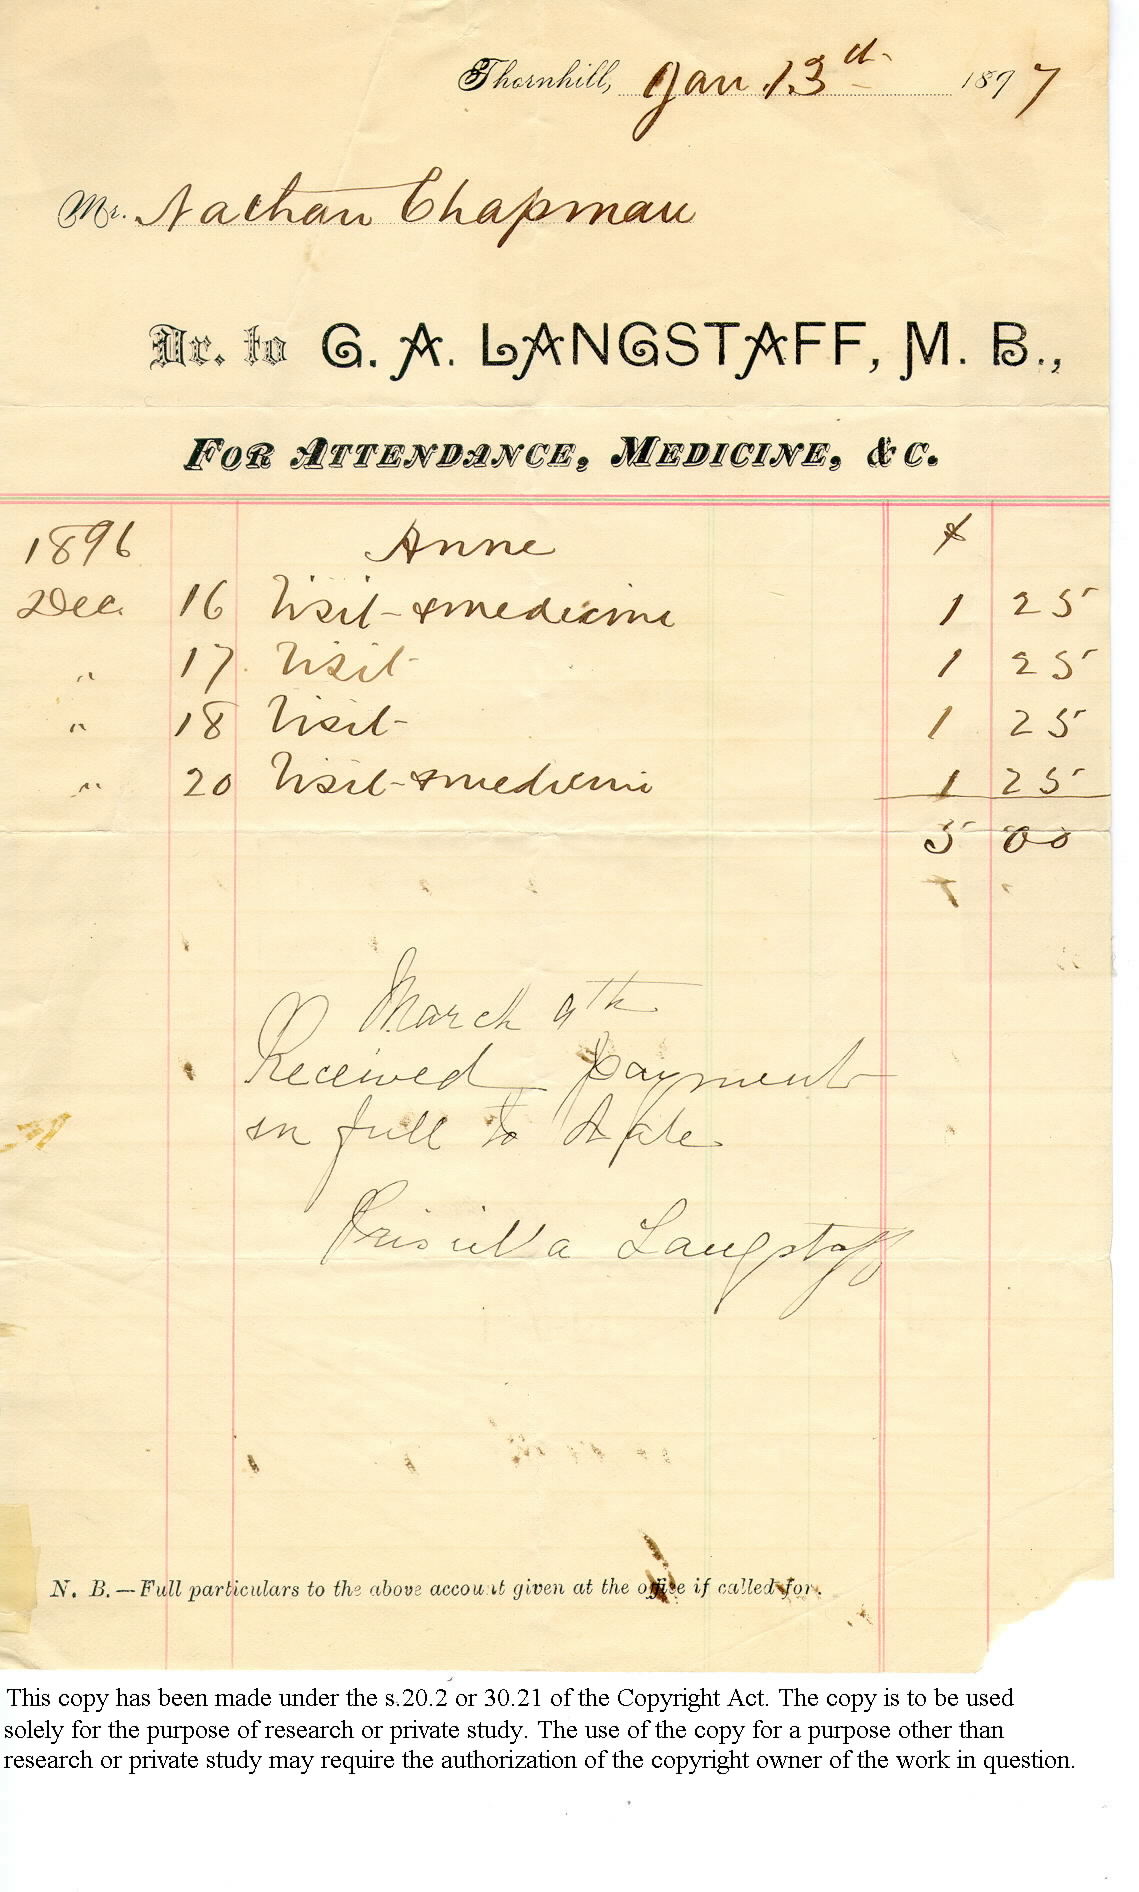 Thornhill, Jan. 13th 1897
Mr. Nathan Chapman
Dr. to G. A. LANGSTAFF, M. B.,
FOR ATTENDANCE, MEDICINE, &C.
1896 Anne $
Dec. 16 Visit & medicine 1 25
" 17 Visit 1 25
" 18 Visit 1 25
" 20 Visit & medicine 1 25
5 00
March 9th
Received payment
in full to date
Priscilla Langstaff
N. B.—Full particulars to the above account given at the office if called for.
This copy has been made under the s.20.2 or 30.21 of the Copyright Act. The copy is to be used
solely for the purpose of research or private study. The use of the copy for a purpose other than
research or private study may require the authorization of the copyright owner of the work in question.